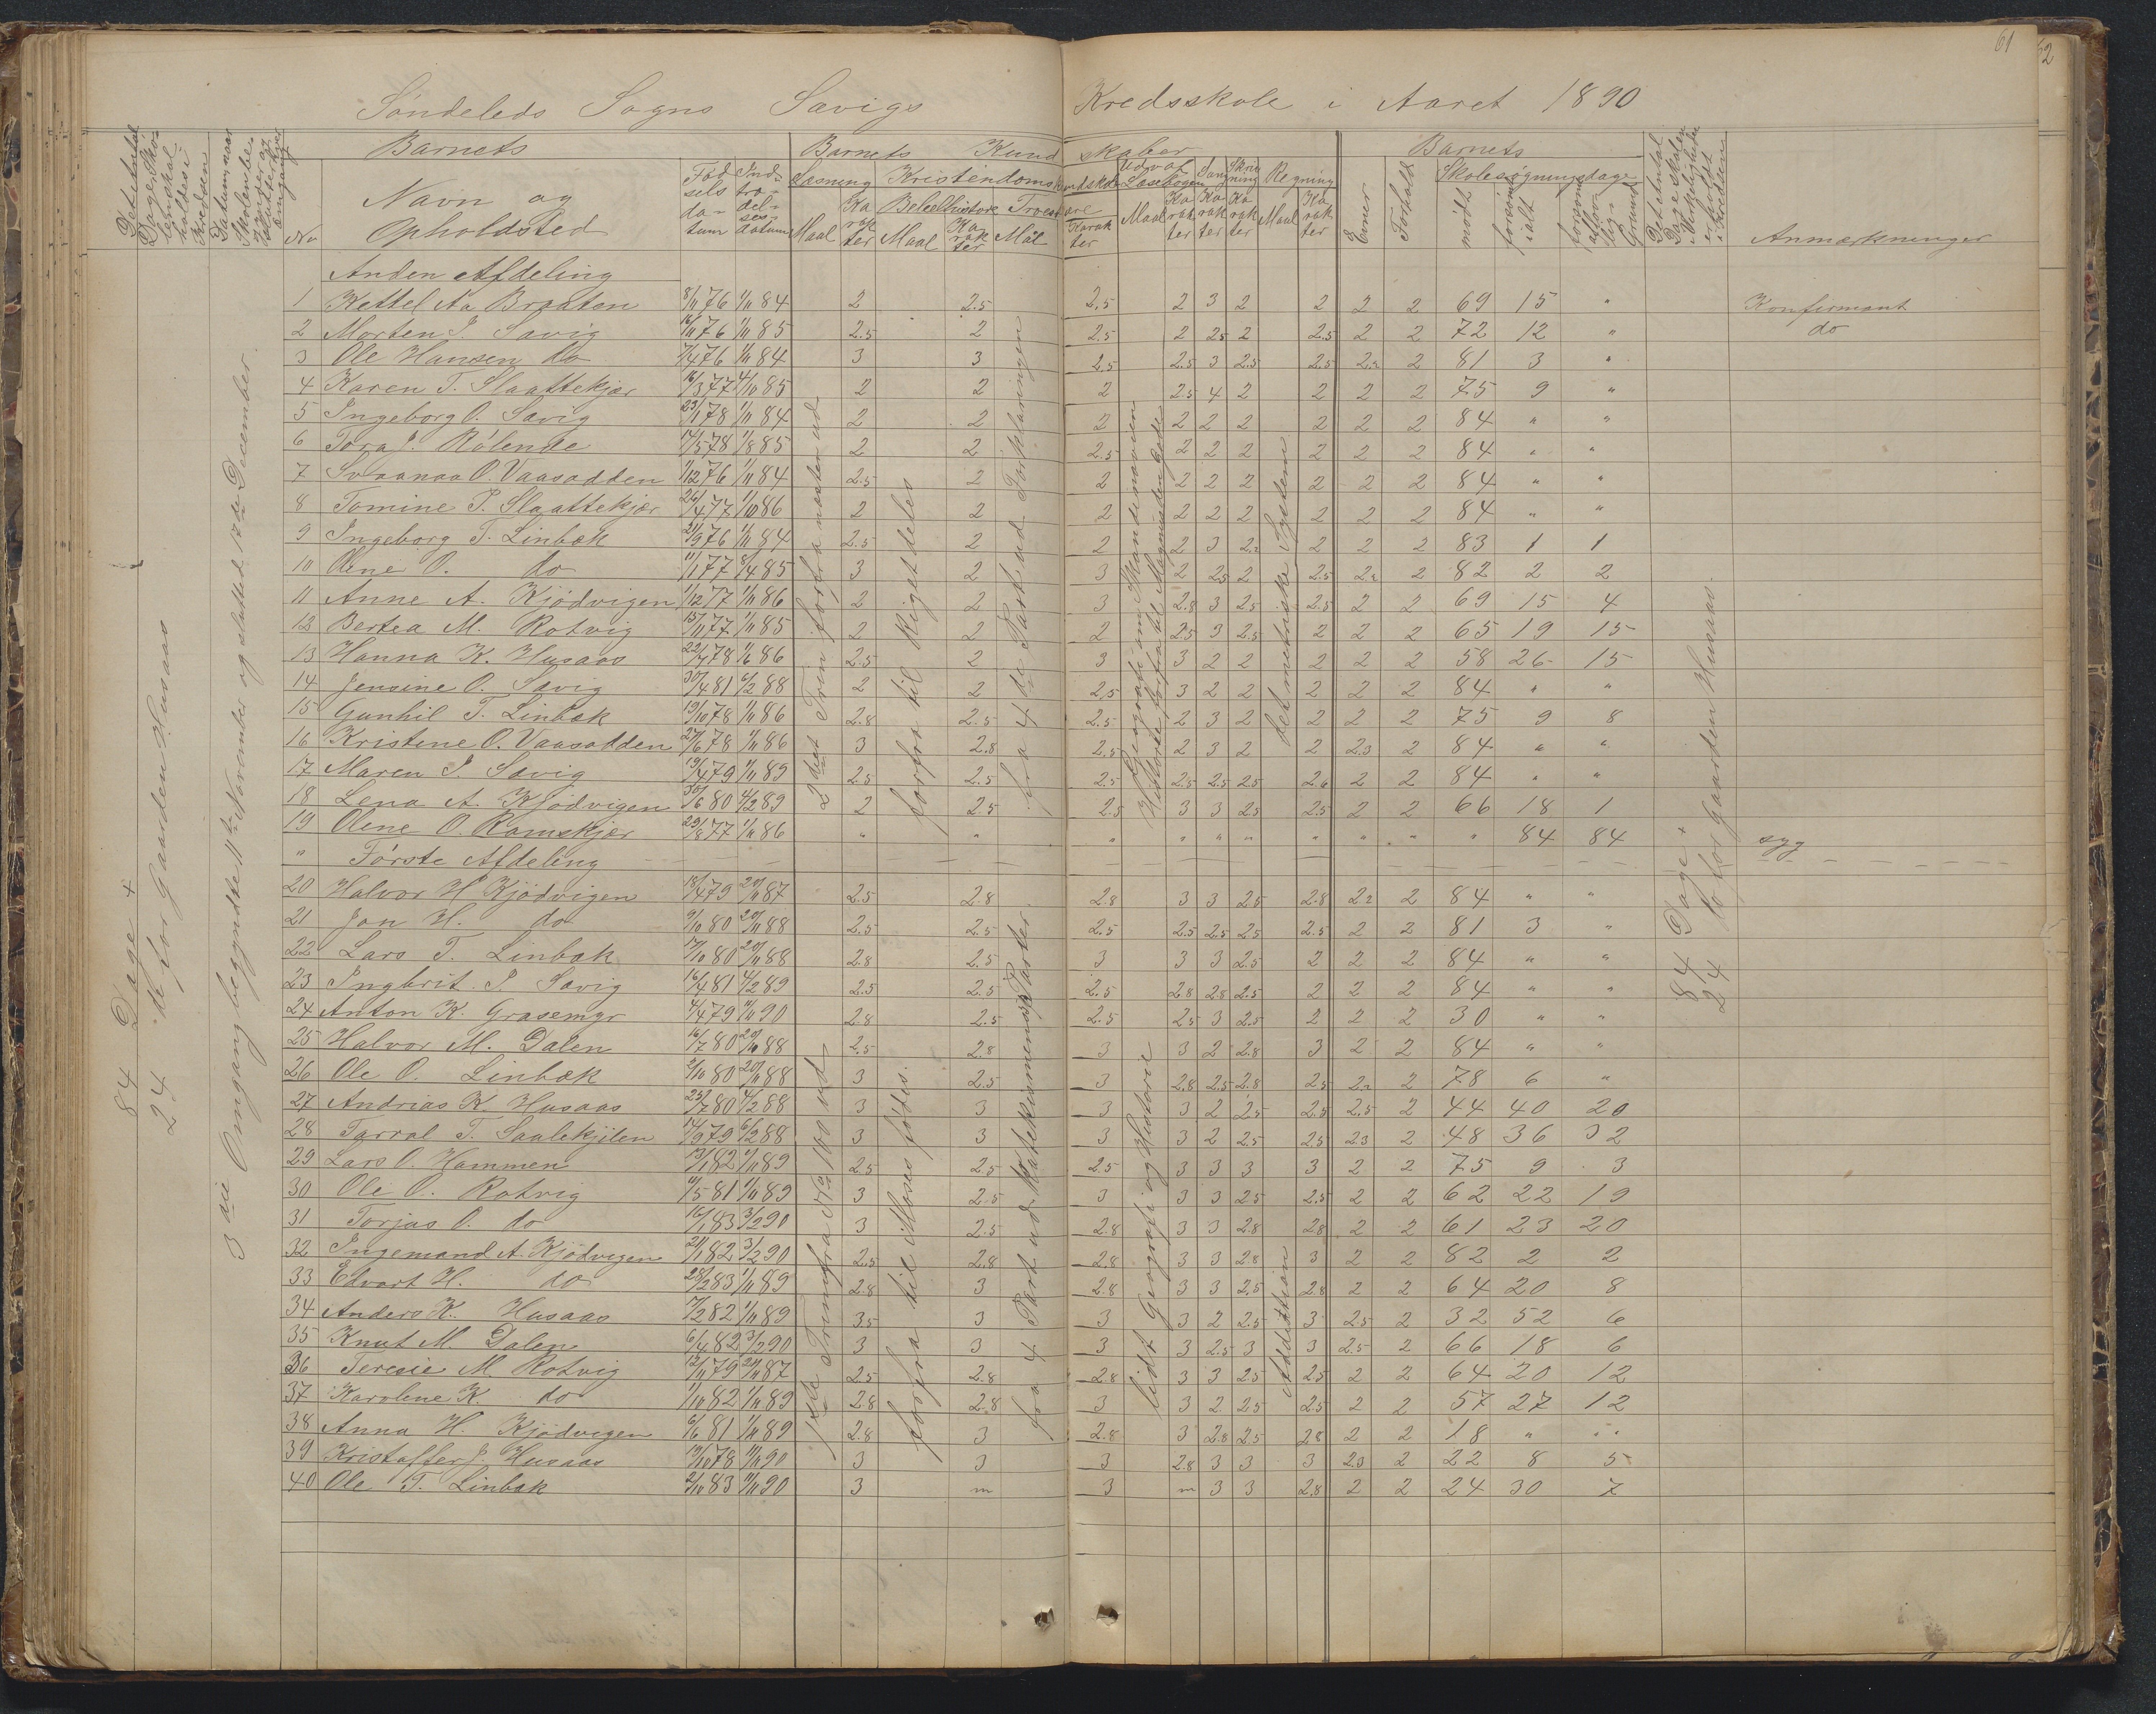 61
62
Söndeleds Sogns Savigs Kredsskole i Aaret 1890
Det Antal Dage Skolen skal holdes i Kredsen
Datum, naar Skolen begynder og slutter hver Omgang
No
Barnets
Navn og Opholdsted
Födselsdatum
Indtrædelsesdatum
Barnets Kundskaber
Læsning Maal Karakter
Kristendomskundskab
Bibelhistorie Maal Karakter
Troeslære Mål Karakter
Udvalg Læsebogen Maal Karakter
Sang Karakter
Skrivning Karakter
Regning Maal Karakter
Barnets
Evner
Forhold
Skolesögningsdage
mödt
forsömt ialt
forsömt uden lovlig Grund
Det Antal Dage Skolen i Virkeligheden er holdt i Kredsen
Anmærkninger
84 Dage +
24 do for Gaarden Husaas
3die Omgang begyndte 11te November og slutted 17de December.
2det Trin forfra næsten ud
forfra til Riget deles
fra 4de Part ud Forklaringen
Geografi om Skandinavien
Historie forfra til Magnus den Gode
det metriske System
84 Dage +
24 do for Gaarden Husaas.
Anden Afdeling
1 Kettel Aa. Braaten 8/11 76 1/11 84 2 2.5 2.5 2 3 2 2 2 2 69 15 " Konfirmant
2 Morten J. Savig 16/11 76 1/11 85 2.5 2 2.5 2 2.5 2 2.5 2 2 72 12 " do
3 Ole Hansen do 7/4 76 1/11 84 3 3 2.5 2.5 3 2.5 2.5 2.2 2 81 3 "
4 Karen T. Slaattekjær 16/3 77 4/10 85 2 2 2 2.5 4 2 2 2 2 75 9 "
5 Ingeborg O. Savig 23/1 78 1/11 84 2 2 2 2 2 2 2 2 2 84 " "
6 Tora J. Rölende 17/5 78 1/8 85 2 2 2.5 2 2 2 2 2 2 84 " "
7 Svaanaa O. Vaasodden 1/12 76 1/11 84 2.5 2 2 2 2 2 2 2 2 84 " "
8 Tomine P. Slaattekjær 26/4 77 1/10 86 2 2 2 2 2 2 2 2 2 84 " "
9 Ingeborg T. Linbæk 21/9 76 1/11 84 2.5 2 2 2 3 2.2 2 2 2 83 1 1
10 Oline O. do 11/1 77 8/4 85 3 2 3 2 2.5 2 2.5 2.2 2 82 2 2
11 Anne A. Kjödvigen 1/12 77 1/11 86 2 2 3 2.8 3 2.5 2.5 2 2 69 15 4
12 Bertea M. Rotvig 15/11 77 1/11 85 2 2 2 2.5 3 2.5 2 2 2 65 19 15
13 Hanna K. Husaas 22/7 78 1/6 86 2.5 2 3 3 2 2 2 2 2 58 26 15
14 Jensine O. Savig 30/4 81 6/2 88 2 2 2.5 3 2 2 2 2 2 84 " "
15 Gunhil T. Linbæk 19/10 78 1/11 86 2.8 2.5 2.5 2 3 2 2 2 2 75 9 8
16 Kristine O. Vaasodden 27/6 78 1/11 86 3 2.8 2.5 2 3 2 2 2.3 2 84 " "
17 Maren J. Savig 19/4 79 1/11 89 2.5 2.5 2.5 2.5 2.5 2.5 2.6 2 2 84 " "
18 Lena A. Kjödvigen 30/6 80 4/2 89 2 2.5 2.5 3 3 2.5 2.5 2 2 66 18 1
19 Oline O. Ramskjær 29/8 77 1/11 86 " " " " " " " " " " 84 84 syg
" Förste Afdeling
20 Halvor H Kjödvigen 18/4 79 20/11 87 2.5 2.8 2.8 3 3 2.5 2.8 2.2 2 84 " "
21 Jon H. do 9/10 80 20/11 88 2.5 2.5 2.5 2.5 2.5 2.5 2.5 2 2 81 3 "
22 Lars T. Linbæk 17/10 80 20/11 88 2.8 2.5 3 3 3 2.5 2 2 2 84 " "
23 Ingbrit. J. Savig 16/4 81 4/2 89 2.5 2.5 2.5 2.8 2.8 2.5 2 2 2 84 " "
24 Anton K. Grasemyr 4/4 79 11/11 90 2.8 2.5 2.5 2.5 3 2.5 2 2 2 30 " "
25 Halvor M. Dalen 16/7 80 20/11 88 2.5 2.8 3 3 2 2.8 3 2 2 84 " "
26 Ole O. Linbæk 2/10 80 20/11 88 3 2.5 3 2.8 2.5 2.8 2.5 2.2 2 78 6 "
27 Andrias K. Husaas 25/7 80 4/2 88 3 3 3 3 2 2.5 2.5 2.5 2 44 40 20
28 Tarral T. Saalekjilen 14/9 79 6/2 88 3 3 3 3 2 2.5 2.5 2.3 2 48 36 32
29 Lars O. Hammen 13/1 82 1/11 89 2.5 2.5 2.5 3 3 3 3 2 2 75 9 3
30 Ole O. Rotvig 11/5 81 1/11 89 3 2.5 3 3 3 2.5 2.5 2 2 62 22 19
31 Torjus O. do 16/1 83 3/2 90 3 2.5 2.8 3 3 2.8 2.8 2 2 61 23 20
32 Ingemand A. Kjödvigen 21/1 82 3/2 90 2.5 2.8 2.8 3 3 2.8 3 2 2 82 2 2
33 Edvart H. do 28/2 83 1/11 89 2.8 3 2.8 3 3 2.5 2.8 2 2 64 20 8
34 Anders K. Husaas 17/2 82 1/11 89 3.5 3 3 3 2 2.5 3 2.5 2 32 52 6
35 Knut M. Dalen 6/4 82 3/2 90 3 3 3 3 2.5 3 3 2.5 2 66 18 6
36 Teresie M. Rotvig 12/11 79 21/11 87 2.5 2.8 2.8 3 3 2.5 2.5 2 2 64 20 12
37 Karoline K. do 1/10 82 1/11 89 2.8 2.8 3 3 2 2.5 2.5 2 2 57 27 12
38 Anna H. Kjödvigen 6/6 81 1/11 89 2.8 3 2.8 3 2.8 2.5 2.8 2 2 18 " "
39 Kristoffer J. Husaas 19/10 78 11/11 90 3 3 3 2.8 3 3 3 2.3 2 22 8 5
40 Ole T. Linbæk 2/10 83 11/11 90 3 m 3 m 3 3 2.8 2 2 24 30 7
1ste Trin fra No 100 ud
forfra til Moses födes.
fra 4 Part ud Katekismens Parter.
lidt Geografi og Historie
Addistion